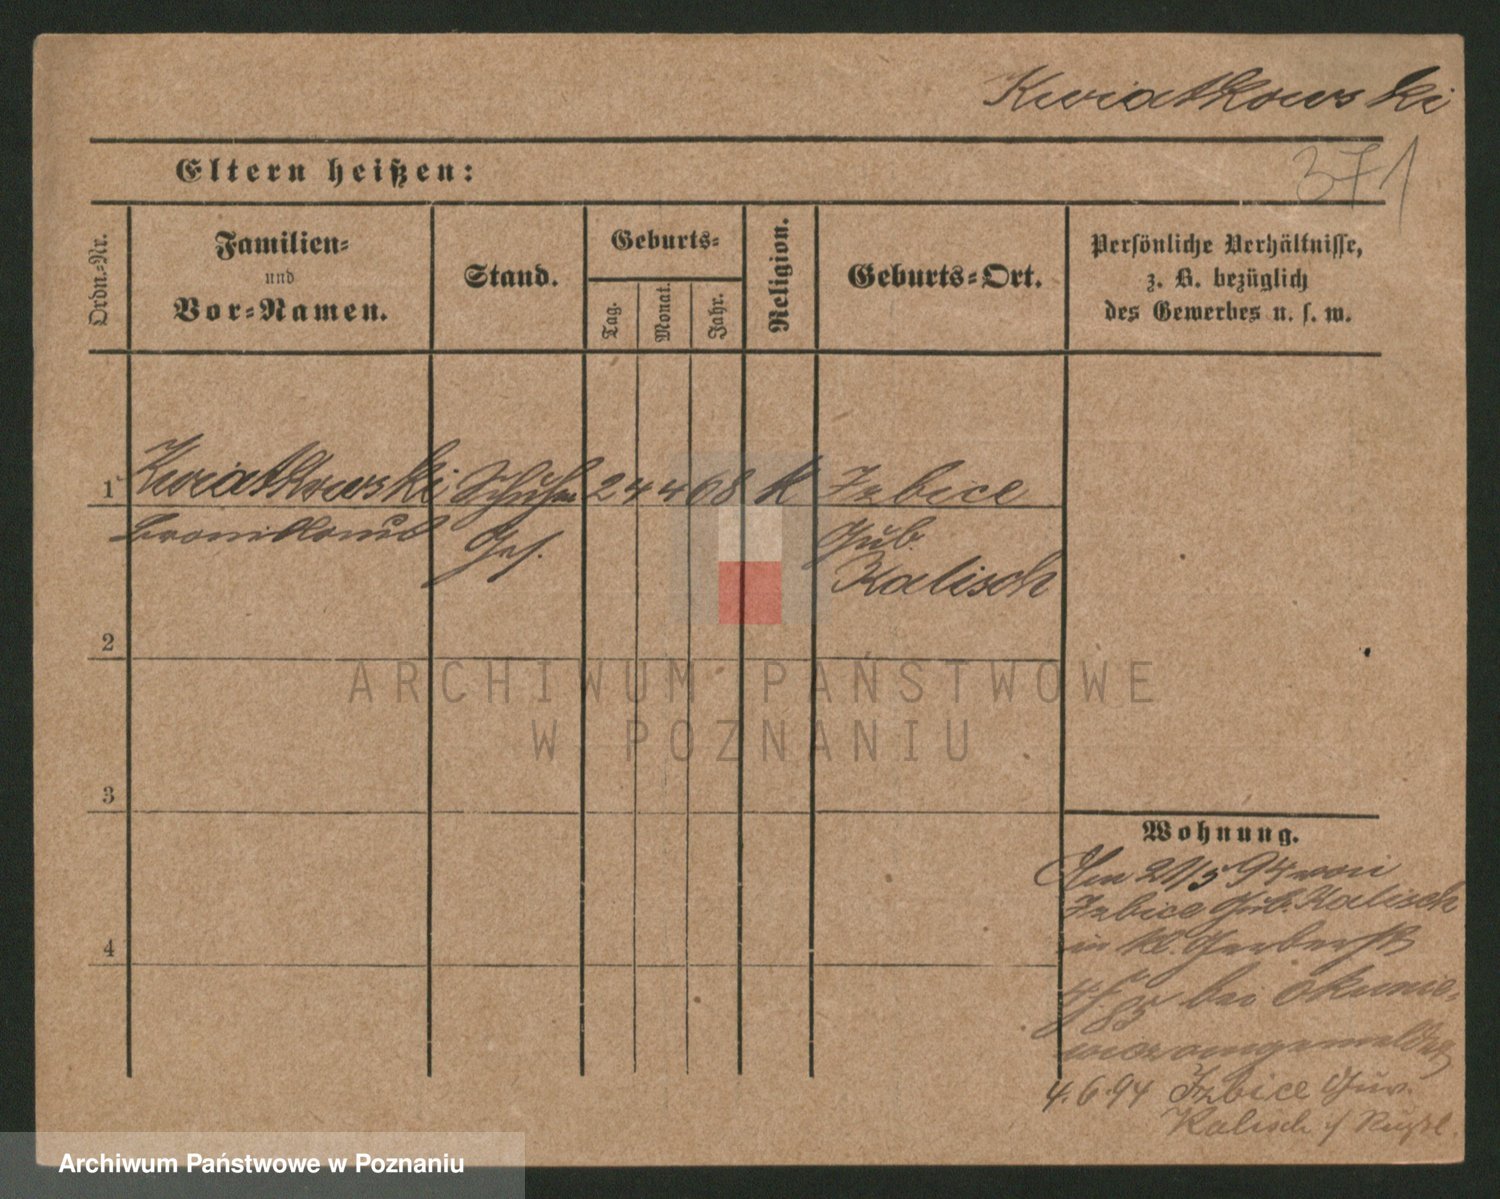 Kwiatkowski
371
Eltern heißen:
Ordn.-Nr.
Familien-
und
Vor-Namen.
Stand.
Geburts-
Tag.
Monat.
Jahr.
Religion.
Geburts-Ort.
Persönliche Verhältnisse,
z. B. bezüglich
des Gewerbes u. s. w.
1 Kwiatkowski Schuhm 24 4 68 K Izbice
Ges. Gub.
Kalisch
2
3
4
Wohnung.
Am 21/5 94 von
Izbice Gub. Kalisch
in kl. Gerberstr
bei Okunie-
wicz angemeldet
4.6.94 Izbice Guv.
Kalisch i/ Rußl.
ARCHIWUM PAŃSTWOWE
W POZNANIU
Archiwum Państwowe w Poznaniu